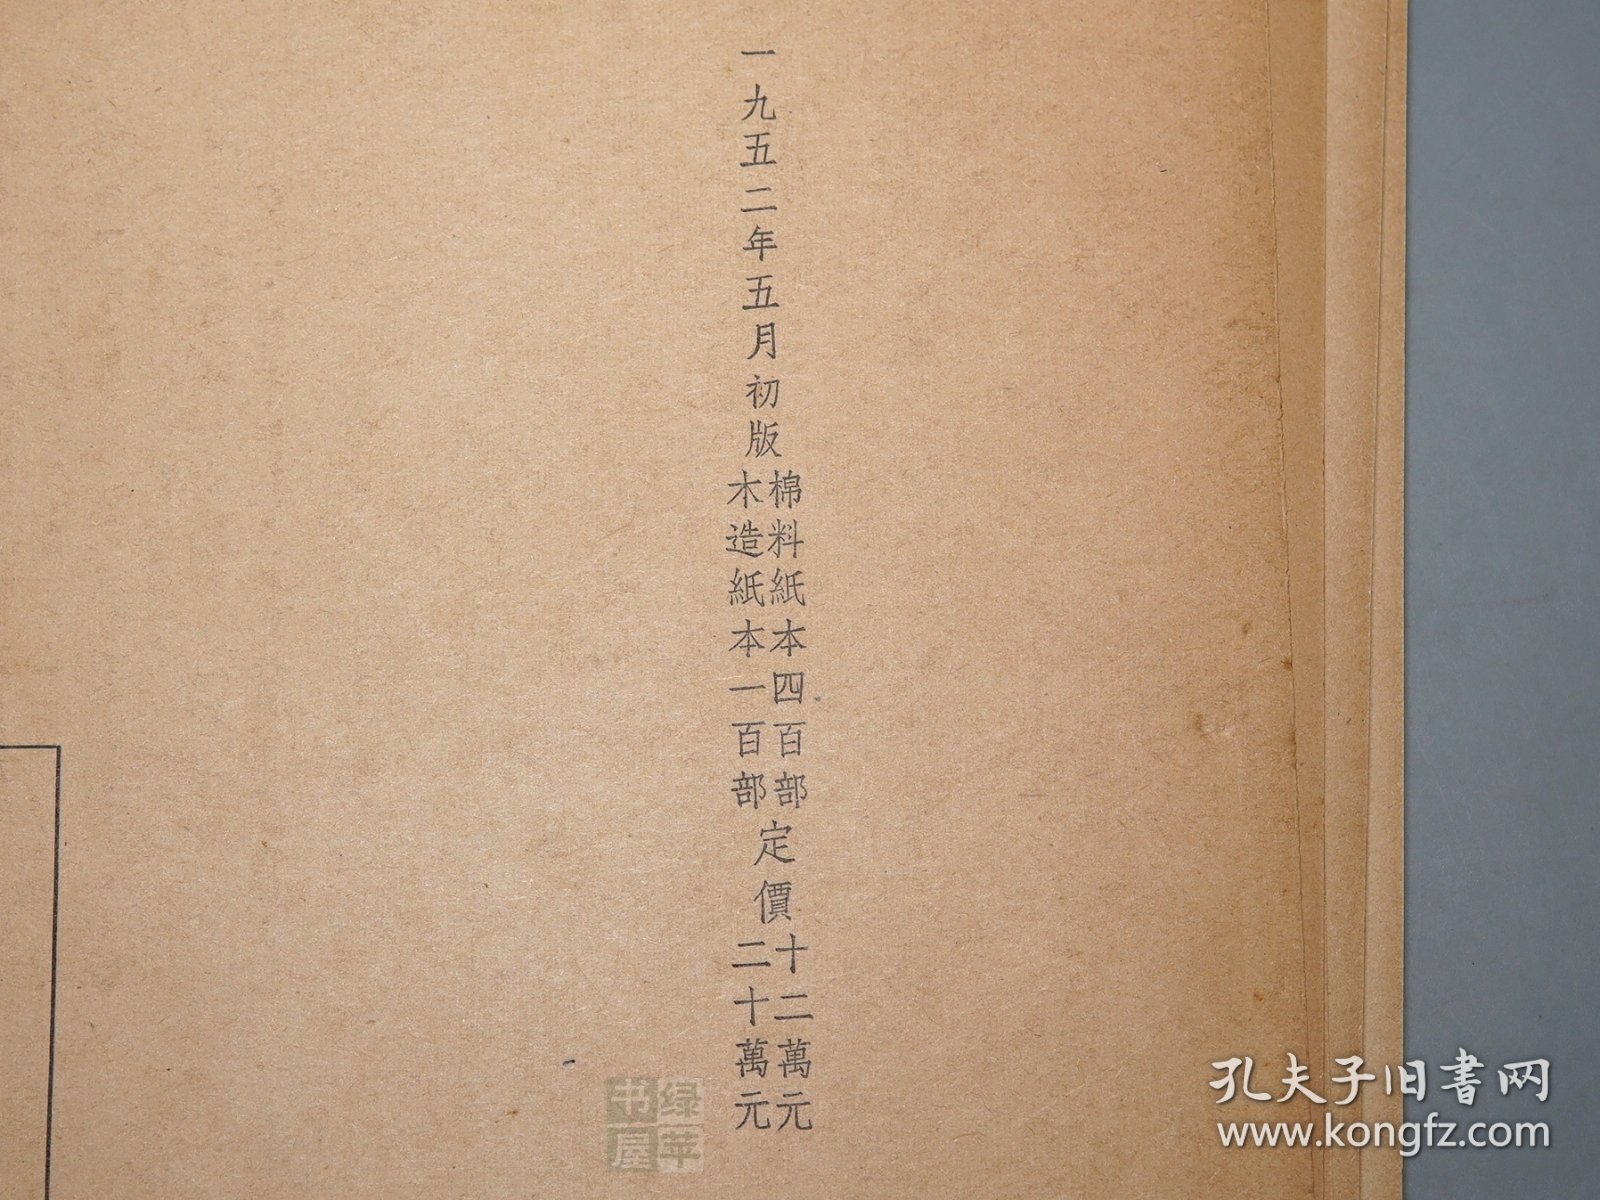 一九五二年五月初版
棉料紙本四百部
木造紙本一百部
定價
十二萬元
二十萬元
绿苹书屋
孔夫子旧書网
www.kongfz.com